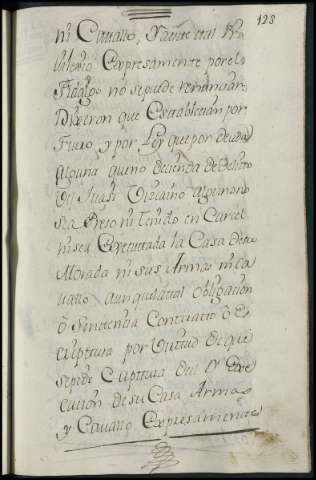 123
ni Cavallo, Yaunte tral Pri
vilexio Expresamente porelo
Fidalgo no sepuede renunciar
Dixeron que Establecian por
Fuero, y por Ley que por deuda
alguna que no decienda de delito
ni quasi Vizcaino alguno no
sea Preso ni tenido en Carcel
ni sea Executada la Casa de su
Morada ni sus Armas ni Ca
vallo, aunque latal obligacion
ò Sentencia Contrato ò Es
criptura por Virtud de que
sepide Captura
cucion de su Casa Armas
y Cavallo Expresamente